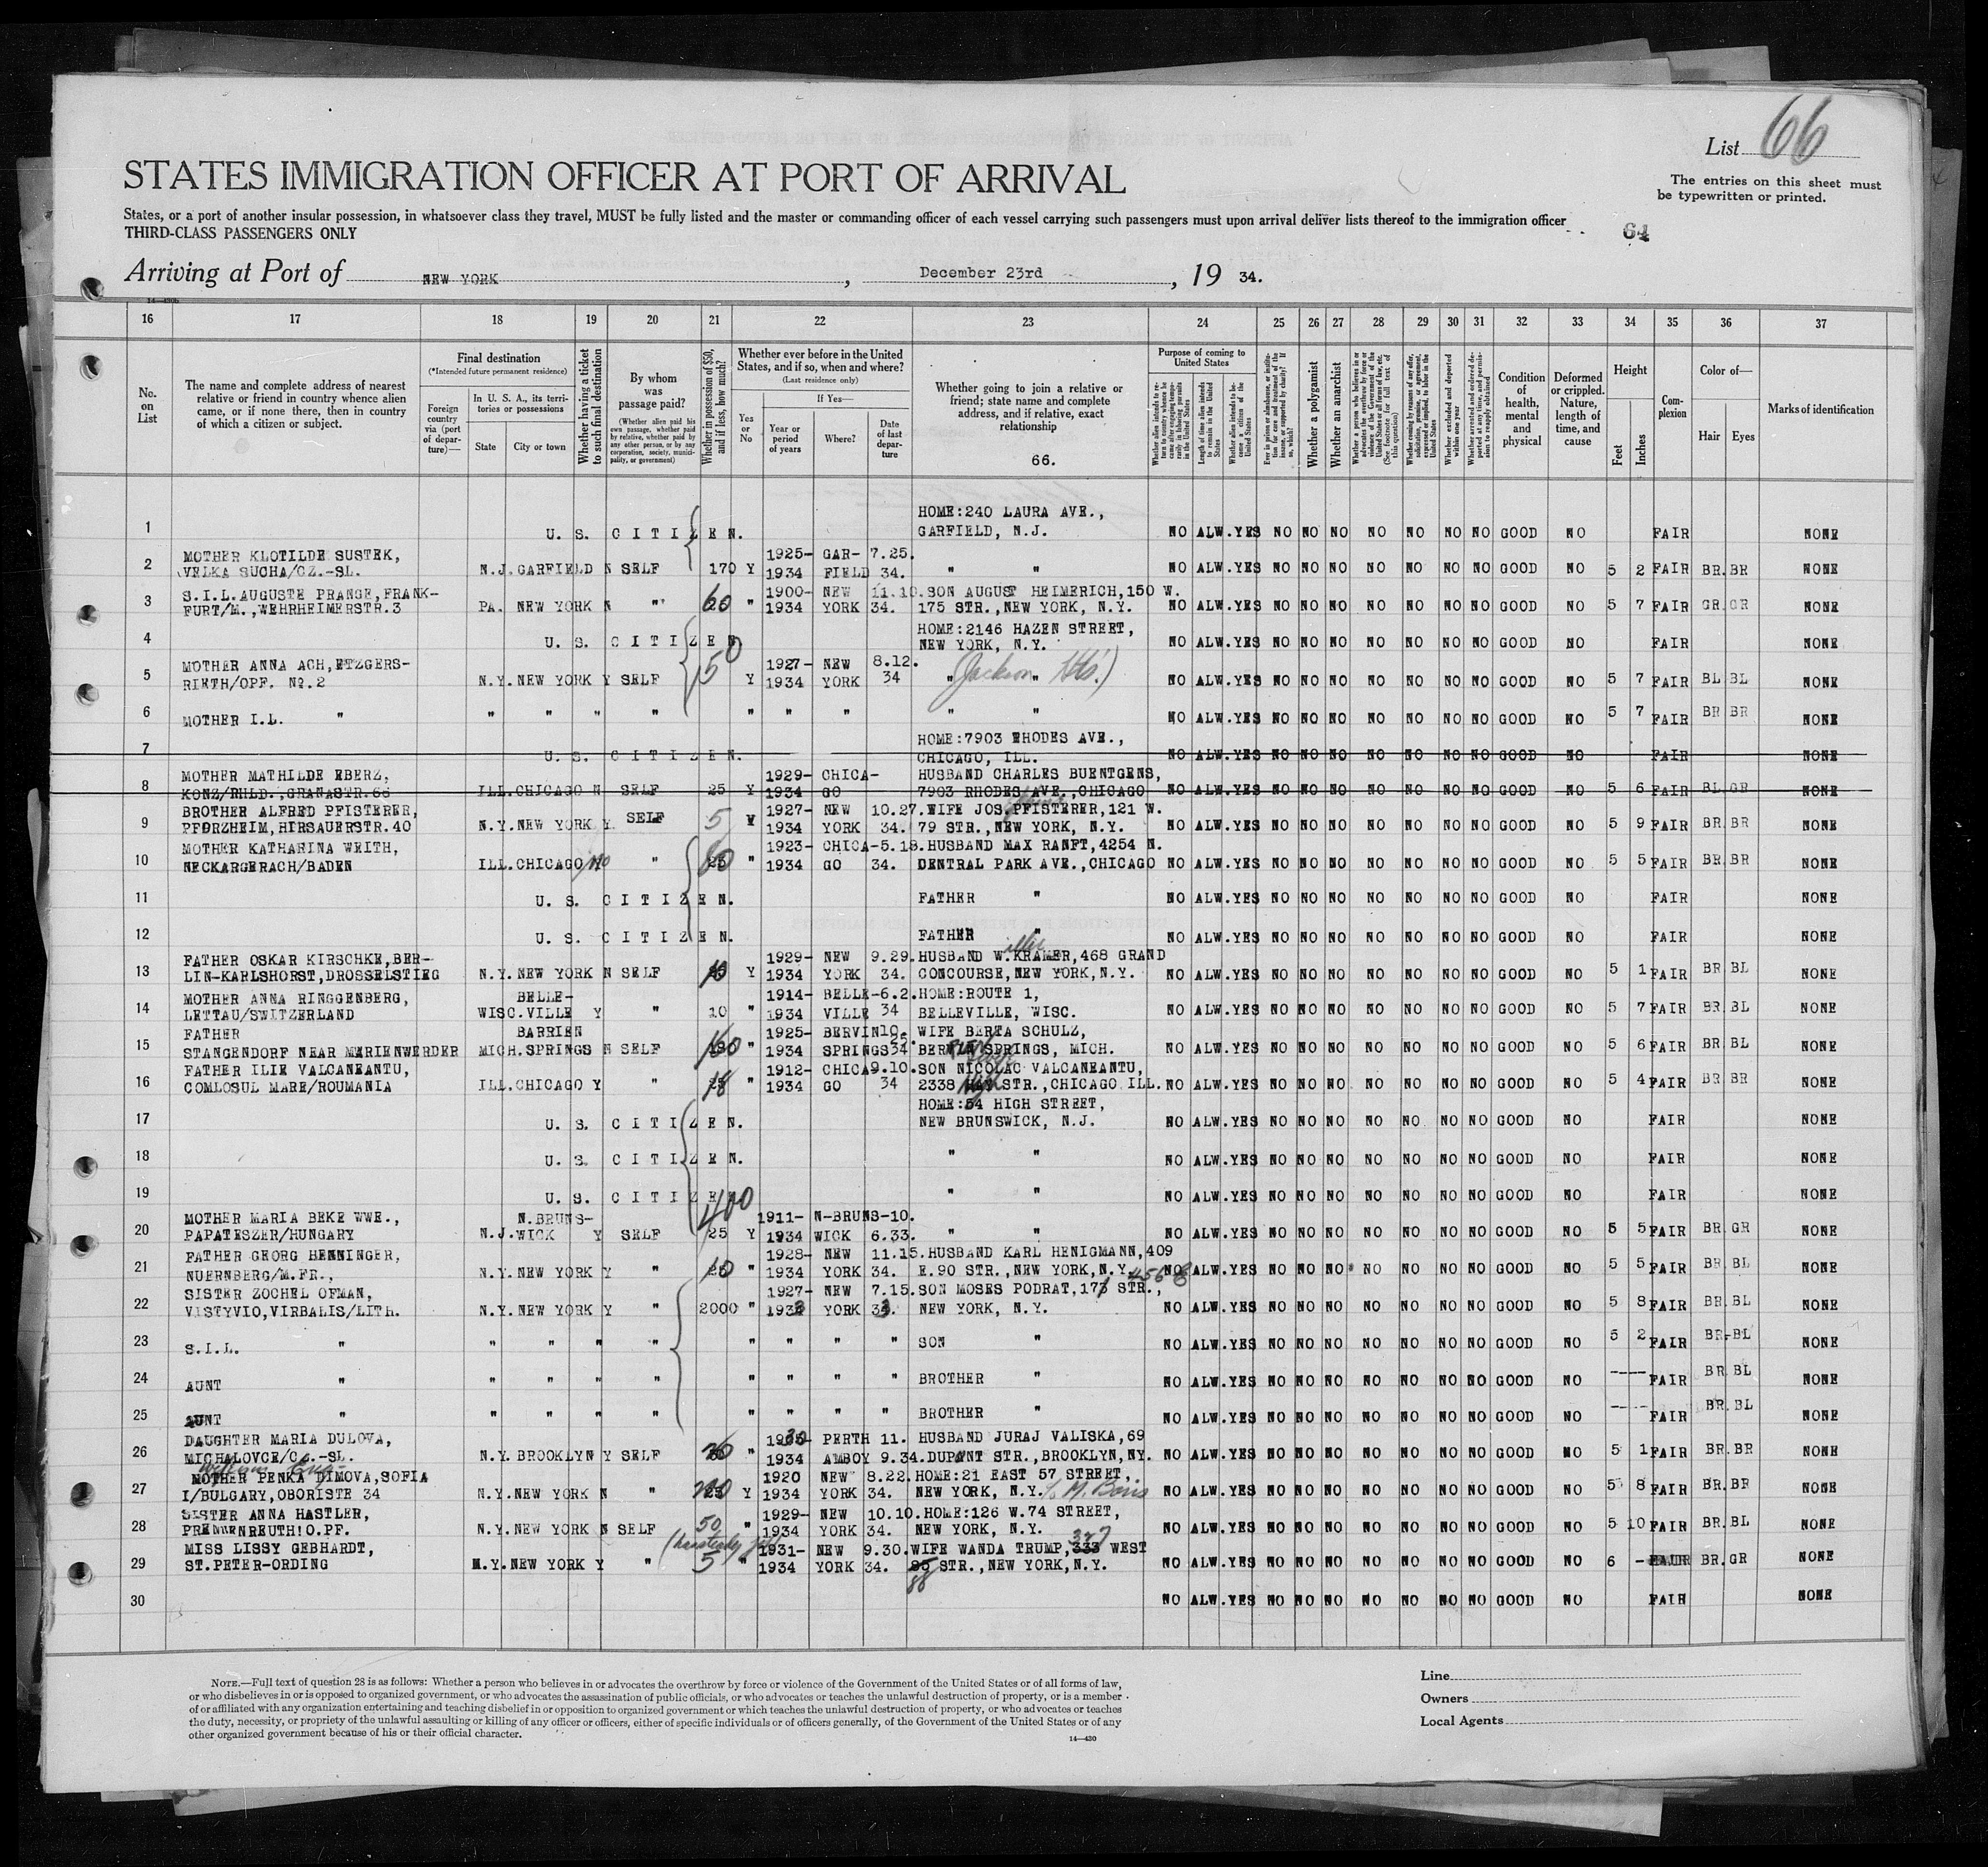 List 66
STATES IMMIGRATION OFFICER AT PORT OF ARRIVAL
The entries on this sheet must
be typewritten or printed.
States, or a port of another insular possession, in whatsoever class they travel, MUST be fully listed and the master or commanding officer of each vessel carrying such passengers must upon arrival deliver lists thereof to the immigration officer
THIRD-CLASS PASSENGERS ONLY
64
Arriving at Port of NEW YORK, December 23rd, 19 34.
16 17 18 19 20 21 22 23 24 25 26 27 28 29 30 31 32 33 34 35 36 37
No. on List
The name and complete address of nearest relative or friend in country whence alien came, or if none there, then in country of which a citizen or subject.
Final destination
(*Intended future permanent residence)
Foreign country via (port of departure)—
In U. S. A., its territories or possessions
State City or town
Whether having a ticket to such final destination
By whom was passage paid?
(Whether alien paid his own passage, whether paid by relative, whether paid by any other person, or by any corporation, society, municipality, or government)
Whether in possession of $50, and if less, how much?
Whether ever before in the United States, and if so, when and where?
(Last residence only)
Yes or No
If Yes—
Year or period of years Where? Date of last departure
Whether going to join a relative or friend; state name and complete address, and if relative, exact relationship
66.
Purpose of coming to United States
Length of time alien intends to remain in the United States
Whether alien intends to become a citizen of the United States
Whether a polygamist
Whether an anarchist
Whether excluded and deported within one year
Condition of health, mental and physical
Deformed or crippled. Nature, length of time, and cause
Height
Feet Inches
Complexion
Color of—
Hair Eyes
Marks of identification
HOME:240 LAURA AVE.,
1 U. S. CITIZEN. GARFIELD, N.J. NO ALW.YES NO NO NO NO NO NO NO GOOD NO FAIR NONE
MOTHER KLOTILDE SUSTEK, 1925- GAR- 7.25.
2 VELKA SUCHA/CZ.-SL. N.J.GARFIELD N SELF 170 Y 1934 FIELD 34. " " NO ALW.YES NO NO NO NO NO NO NO GOOD NO 5 2 FAIR BR.BR NONE
S.I.L.AUGUSTE PRANGE,FRANK- 1900- NEW 11.10.SON AUGUST HEIMERICH,150 W.
3 FURT/M.,WEHRHEIMERSTR.3 PA. NEW YORK N " 60 " 1934 YORK 34. 175 STR.,NEW YORK, N.Y. NO ALW.YES NO NO NO NO NO NO NO GOOD NO 5 7 FAIR GR.GR NONE
HOME:2146 HAZEN STREET,
4 U. S. CITIZEN NEW YORK, N.Y. NO ALW.YES NO NO NO NO NO NO NO GOOD NO FAIR NONE
MOTHER ANNA ACH,ETZGERS- 1927- NEW 8.12. (Jackson Hts.)
5 RIETH/OPF. No.2 N.Y.NEW YORK Y SELF 150 Y 1934 YORK 34 " " NO ALW.YES NO NO NO NO NO NO NO GOOD NO 5 7 FAIR BL BL NONE
6 MOTHER I.L. " " " " " " " " " " NO ALW.YES NO NO NO NO NO NO NO GOOD NO 5 7 FAIR BR BR NONE
HOME:7903 RHODES AVE.,
7 U. S. CITIZEN. CHICAGO, ILL. NO ALW.YES NO NO NO NO NO NO NO GOOD NO FAIR NONE
MOTHER MATHILDE EBERZ, 1929- CHICA- HUSBAND CHARLES BUENTGENS,
8 KONZ/RHLD.,GRANASTR.66 ILL.CHICAGO N SELF 25 Y 1934 GO 7903 RHODES AVE.,CHICAGO NO ALW.YES NO NO NO NO NO NO NO GOOD NO 5 6 FAIR BL.GR NONE
BROTHER ALFRED PFISTERER, 1927- NEW 10.27.WIFE JOS.PFISTERER,121 W.
9 PFORZHEIM,HIRSAUERSTR.40 N.Y.NEW YORK Y SELF 5 Y 1934 YORK 34. 79 STR.,NEW YORK, N.Y. NO ALW.YES NO NO NO NO NO NO NO GOOD NO 5 9 FAIR BR.BR NONE
MOTHER KATHARINA WEITH, 1923- CHICA-5.18.HUSBAND MAX RANFT,4254 N.
10 NECKARGERACH/BADEN ILL.CHICAGO No " " 1934 GO 34. DENTRAL PARK AVE.,CHICAGO NO ALW.YES NO NO NO NO NO NO NO GOOD NO 5 5 FAIR BR.BR NONE
11 U. S. CITIZEN. FATHER " NO ALW.YES NO NO NO NO NO NO NO GOOD NO FAIR NONE
12 U. S. CITIZEN. FATHER " NO ALW.YES NO NO NO NO NO NO NO GOOD NO FAIR NONE
FATHER OSKAR KIRSCHKE,BER- 1929- NEW 9.29.HUSBAND W.KRAMER,468 GRAND
13 LIN-KARLSHORST,DROSSELSTIEG N.Y.NEW YORK N SELF Y 1934 YORK 34. CONCOURSE,NEW YORK,N.Y. NO ALW.YES NO NO NO NO NO NO NO GOOD NO 5 1 FAIR BR.BL NONE
MOTHER ANNA RINGGENBERG, BELLE- 1914- BELLE-6.2.HOME:ROUTE 1,
14 LETTAU/SWITZERLAND WISC.VILLE Y " 10 " 1934 VILLE 34 BELLEVILLE, WISC. NO ALW.YES NO NO NO NO NO NO NO GOOD NO 5 7 FAIR BR.BL NONE
FATHER BARRIEN 1925- BERVIN10. WIFE BERTA SCHULZ,
15 STANGENDORF NEAR MARIENWERDER MICH.SPRINGS N SELF " 1934 SPRINGS34. SPRINGS, MICH. NO ALW.YES NO NO NO NO NO NO NO GOOD NO 5 6 FAIR BR.BL NONE
FATHER ILIE VALCANEANTU, 1912- CHICA9.10.SON NICOLAC VALCANEANTU,
16 COMLOSUL MARE/ROUMANIA ILL.CHICAGO Y " " 1934 GO 34 2338 STR.,CHICAGO ILL. NO ALW.YES NO NO NO NO NO NO NO GOOD NO 5 4 FAIR BR BR NONE
HOME:54 HIGH STREET,
17 U. S. CITIZEN. NEW BRUNSWICK, N.J. NO ALW.YES NO NO NO NO NO NO NO GOOD NO FAIR NONE
18 U. S. CITIZEN. " " NO ALW.YES NO NO NO NO NO NO NO GOOD NO FAIR NONE
19 U. S. CITIZE " " NO ALW.YES NO NO NO NO NO NO NO GOOD NO FAIR NONE
MOTHER MARIA BEKE WWE., N.BRUNS- 400 1911- N-BRUNS-10.
20 PAPATESZER/HUNGARY N.J.WICK Y SELF 25 Y 1934 WICK 6.33. " " NO ALW.YES NO NO NO NO NO NO NO GOOD NO 5 5 FAIR BR.GR NONE
FATHER GEORG HENNINGER, 1928- NEW 11.15.HUSBAND KARL HENIGMANN,409
21 NUERNBERG/M.FR., N.Y.NEW YORK Y " " 1934 YORK 34. E.90 STR.,NEW YORK,N.Y. NO ALW.YES NO NO NO NO NO NO NO GOOD NO 5 5 FAIR BR.BL NONE
SISTER ZOCHEL OFMAN, 1927- NEW 7.15.SON MOSES PODRAT,17 STR., 456
22 VISTYVIO,VIRBALIS/LITH. N.Y.NEW YORK Y " 2000 " 1933 YORK 33. NEW YORK, N.Y. NO ALW.YES NO NO NO NO NO NO NO GOOD NO 5 8 FAIR BR.BL NONE
23 S.I.L. " " " " " " " " " SON " NO ALW.YES NO NO NO NO NO NO NO GOOD NO 5 2 FAIR BR-BL NONE
24 AUNT " " " " " " " " " BROTHER " NO ALW.YES NO NO NO NO NO NO NO GOOD NO ---- FAIR BR.BL NONE
25 AUNT " " " " " " " " " BROTHER " NO ALW.YES NO NO NO NO NO NO NO GOOD NO ---- FAIR BR.BL NONE
DAUGHTER MARIA DULOVA, 1930- PERTH 11. HUSBAND JURAJ VALISKA,69
26 MICHALOVCE/CZ.-SL. N.Y. BROOKLYN Y SELF " 1934 AMBOY 9.34.DUPONT STR.,BROOKLYN,NY. NO ALW.YES NO NO NO NO NO NO NO GOOD NO 5 1 FAIR BR.BR NONE
MOTHER PENKA DIMOVA,SOFIA 1920 NEW 8.22.HOME:21 EAST 57 STREET,
27 I/BULGARY,OBORISTE 34 N.Y.NEW YORK N " Y 1934 YORK 34. NEW YORK, N.Y. c/o M. Boris NO ALW.YES NO NO NO NO NO NO NO GOOD NO 5 8 FAIR BR.BR NONE
SISTER ANNA HASTLER, 1929- NEW 10.10.HOME:126 W.74 STREET,
28 N.Y.NEW YORK N SELF 50 " 1934 YORK 34. NEW YORK, N.Y. NO ALW.YES NO NO NO NO NO NO NO GOOD NO 5 10 FAIR BR.BL NONE
MISS LISSY GEBHARDT, 1931- NEW 9.30.WIFE WANDA TRUMP,333 327 WEST
29 ST.PETER-ORDING N.Y.NEW YORK Y " 5 " 1934 YORK 34. 88 STR.,NEW YORK,N.Y. NO ALW.YES NO NO NO NO NO NO NO GOOD NO 6 - FAIR BR.GR NONE
30 NO ALW.YES NO NO NO NO NO NO NO GOOD NO FAIR NONE
NOTE.—Full text of question 28 is as follows: Whether a person who believes in or advocates the overthrow by force or violence of the Government of the United States or of all forms of law,
or who disbelieves in or is opposed to organized government, or who advocates the assassination of public officials, or who advocates or teaches the unlawful destruction of property, or is a member
of or affiliated with any organization entertaining and teaching disbelief in or opposition to organized government or which teaches the unlawful destruction of property, or who advocates or teaches
the duty, necessity, or propriety of the unlawful assaulting or killing of any officer or officers, either of specific individuals or of officers generally, of the Government of the United States or of any
other organized government because of his or their official character.
14—430
Line
Owners
Local Agents